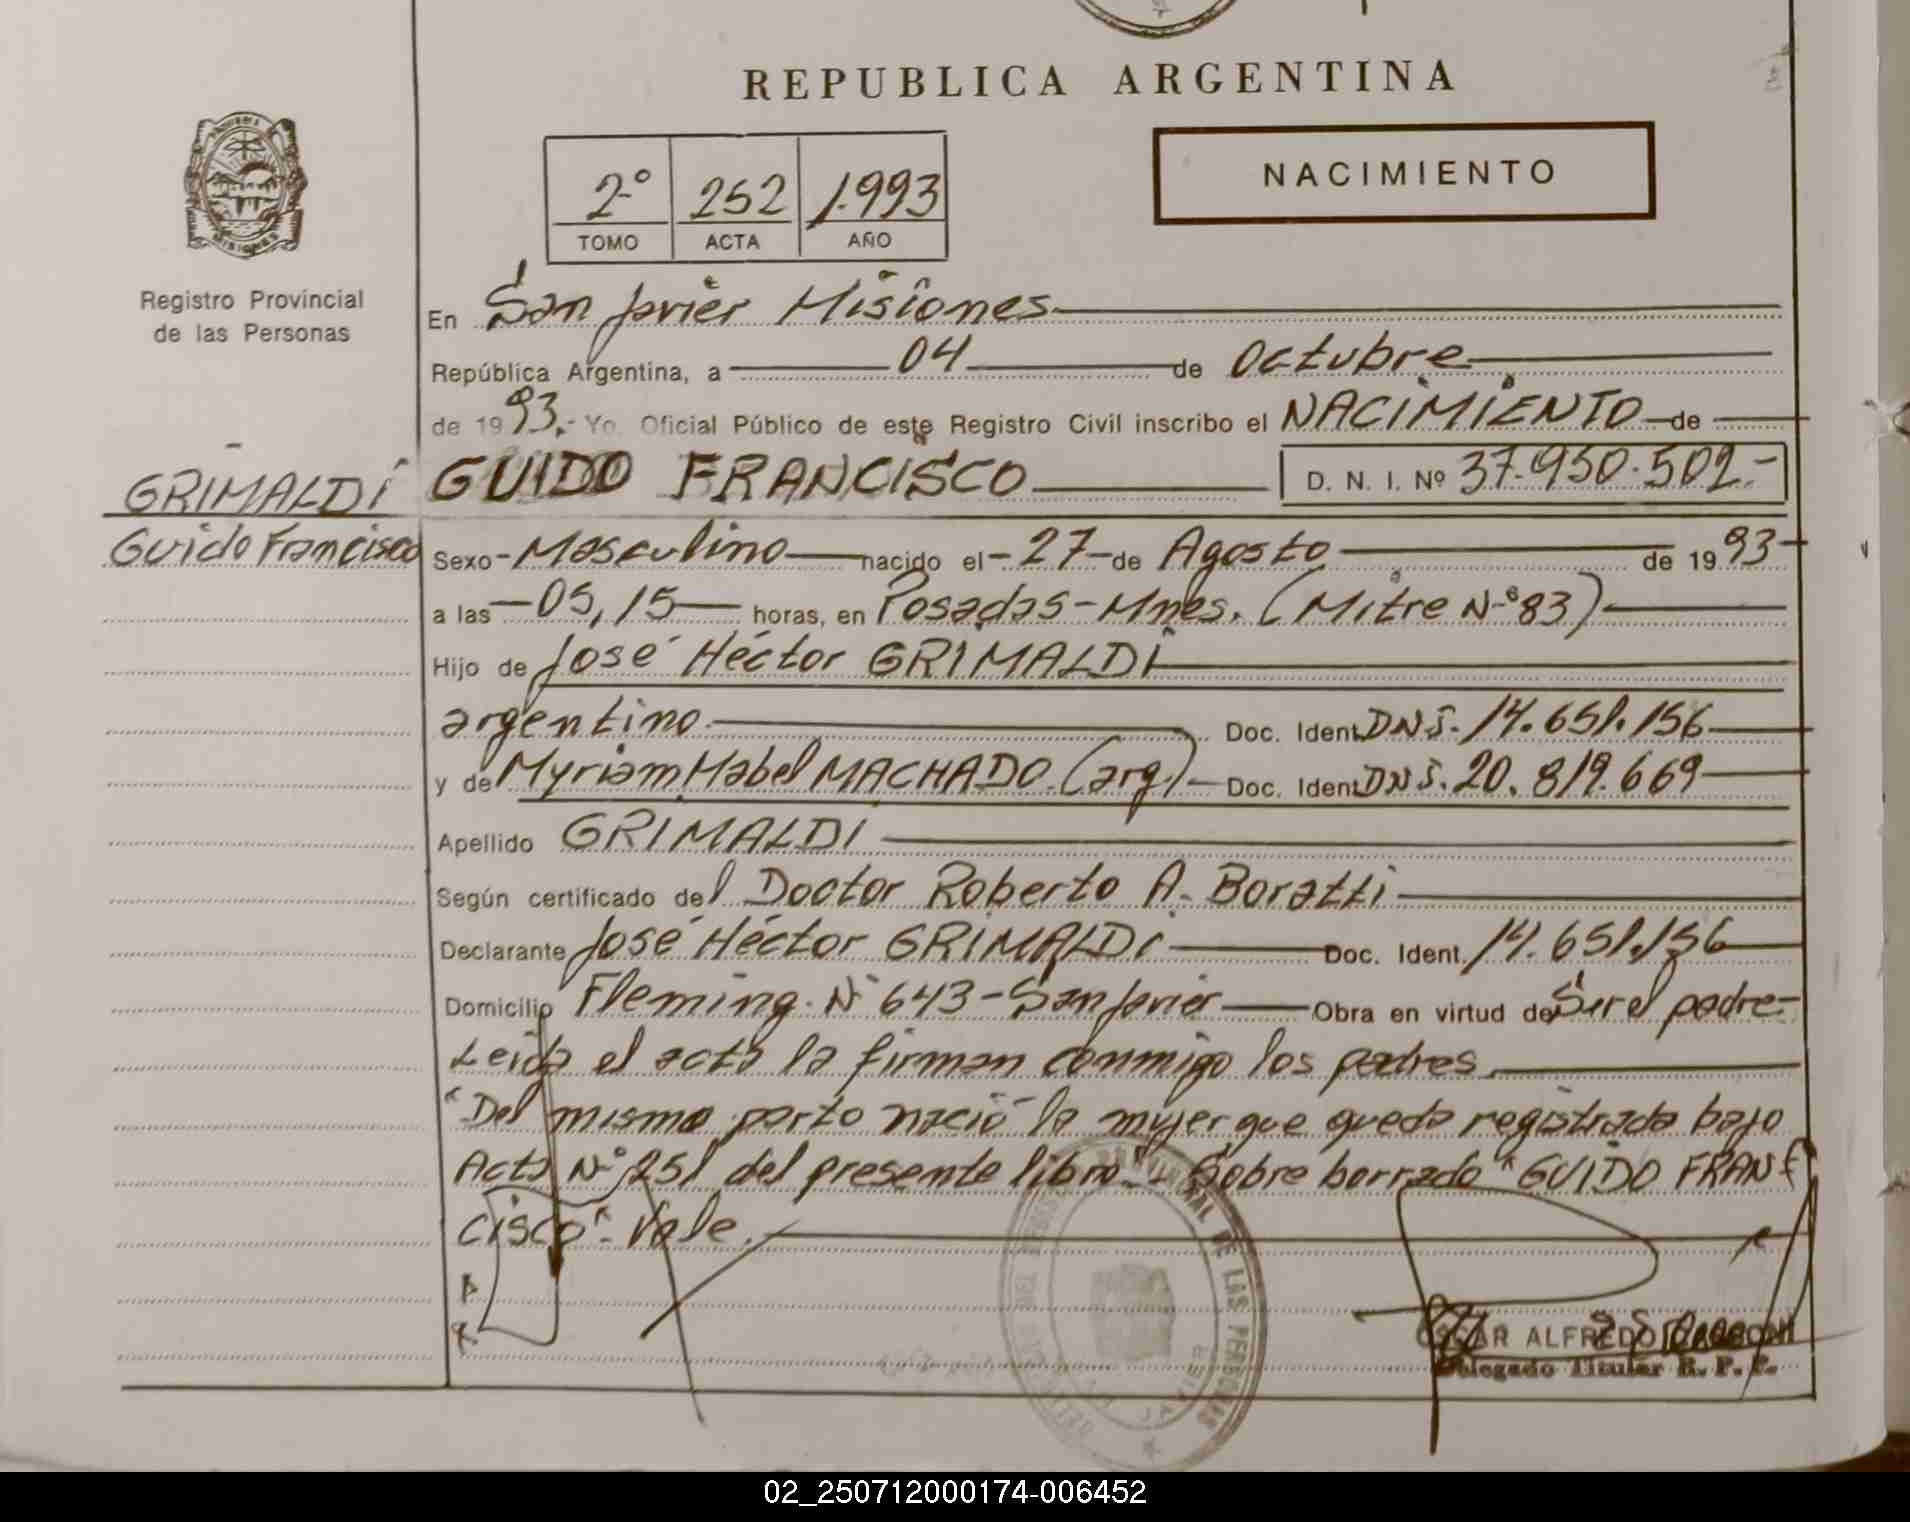 REPUBLICA ARGENTINA
NACIMIENTO
2º 252 1.993
TOMO ACTA AÑO
Registro Provincial
de las Personas
En San Javier Misiones
República Argentina, a 04 de Octubre
de 1993.- Yo, Oficial Público de este Registro Civil inscribo el NACIMIENTO de
GRIMALDI
GUIDO FRANCISCO D. N. I. Nº 37.950.502.-
Guido Francisco
Sexo - Masculino nacido el - 27 - de Agosto de 1993
a las - 05,15 horas, en Posadas - Mnes. (Mitre Nº 83)
Hijo de José Héctor GRIMALDI
argentino Doc. Ident. DNI. 14.651.156
y de Myriam Mabel MACHADO. (arg.) - Doc. Ident. DNI. 20.819.669
Apellido GRIMALDI
Según certificado del Doctor Roberto A. Boratti
Declarante José Héctor GRIMALDI Doc. Ident. 14.651.156
Domicilio Fleming Nº 643 - San Javier Obra en virtud de Ser el padre-
Leida el acta la firman conmigo los padres
"Del mismo parto nació la mujer que queda registrada bajo
Acta Nº 251 del presente libro".- Sobre borrado "GUIDO FRAN
CISCO" - Vale.
OSCAR ALFREDO
Delegado Titular R. P. P.
02_250712000174-006452